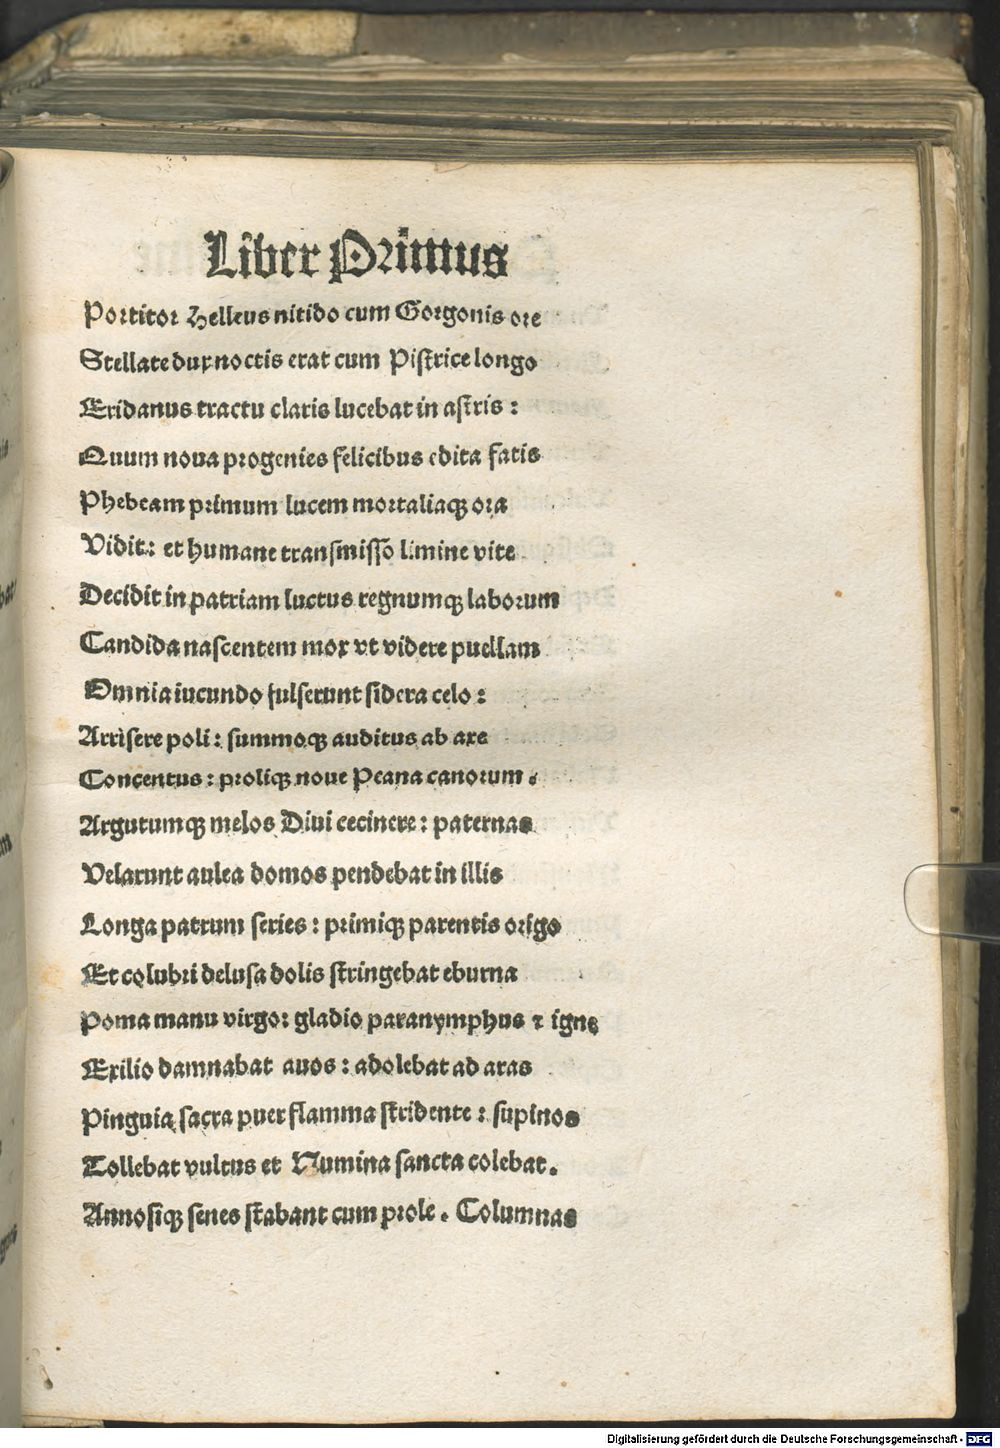 Liber Primus
Portitor Helleus nitido cum Gorgonis ore
Stellate dux noctis erat cum Pistrice longo
Eridanus tractu claris lucebat in astris:
Quum noua progenies felicibus edita fatis
Phebeam primum lucem mortaliaqꝫ ora
Vidit: et humane transmisso limine vite
Decidit in patriam luctus regnumqꝫ laborum
Candida nascentem mox vt videre puellam
Omnia iucundo fulserunt sidera celo:
Arrisere poli: summoqꝫ auditus ab axe
Concentus: proliqꝫ noue Peana canorum.
Argutumqꝫ melos Diui cecinere: paternas
Velarunt aulea domos pendebat in illis
Longa patrum series: primiqꝫ parentis origo
Et colubri delusa dolis stringebat eburna
Poma manu virgo: gladio paranymphus ⁊ igne
Exilio damnabat auos: adolebat ad aras
Pinguia sacra puer flamma stridente: supinos
Tollebat vultus et Numina sancta colebat.
Annosiqꝫ senes stabant cum prole. Columnas
Digitalisierung gefördert durch die Deutsche Forschungsgemeinschaft - DFG